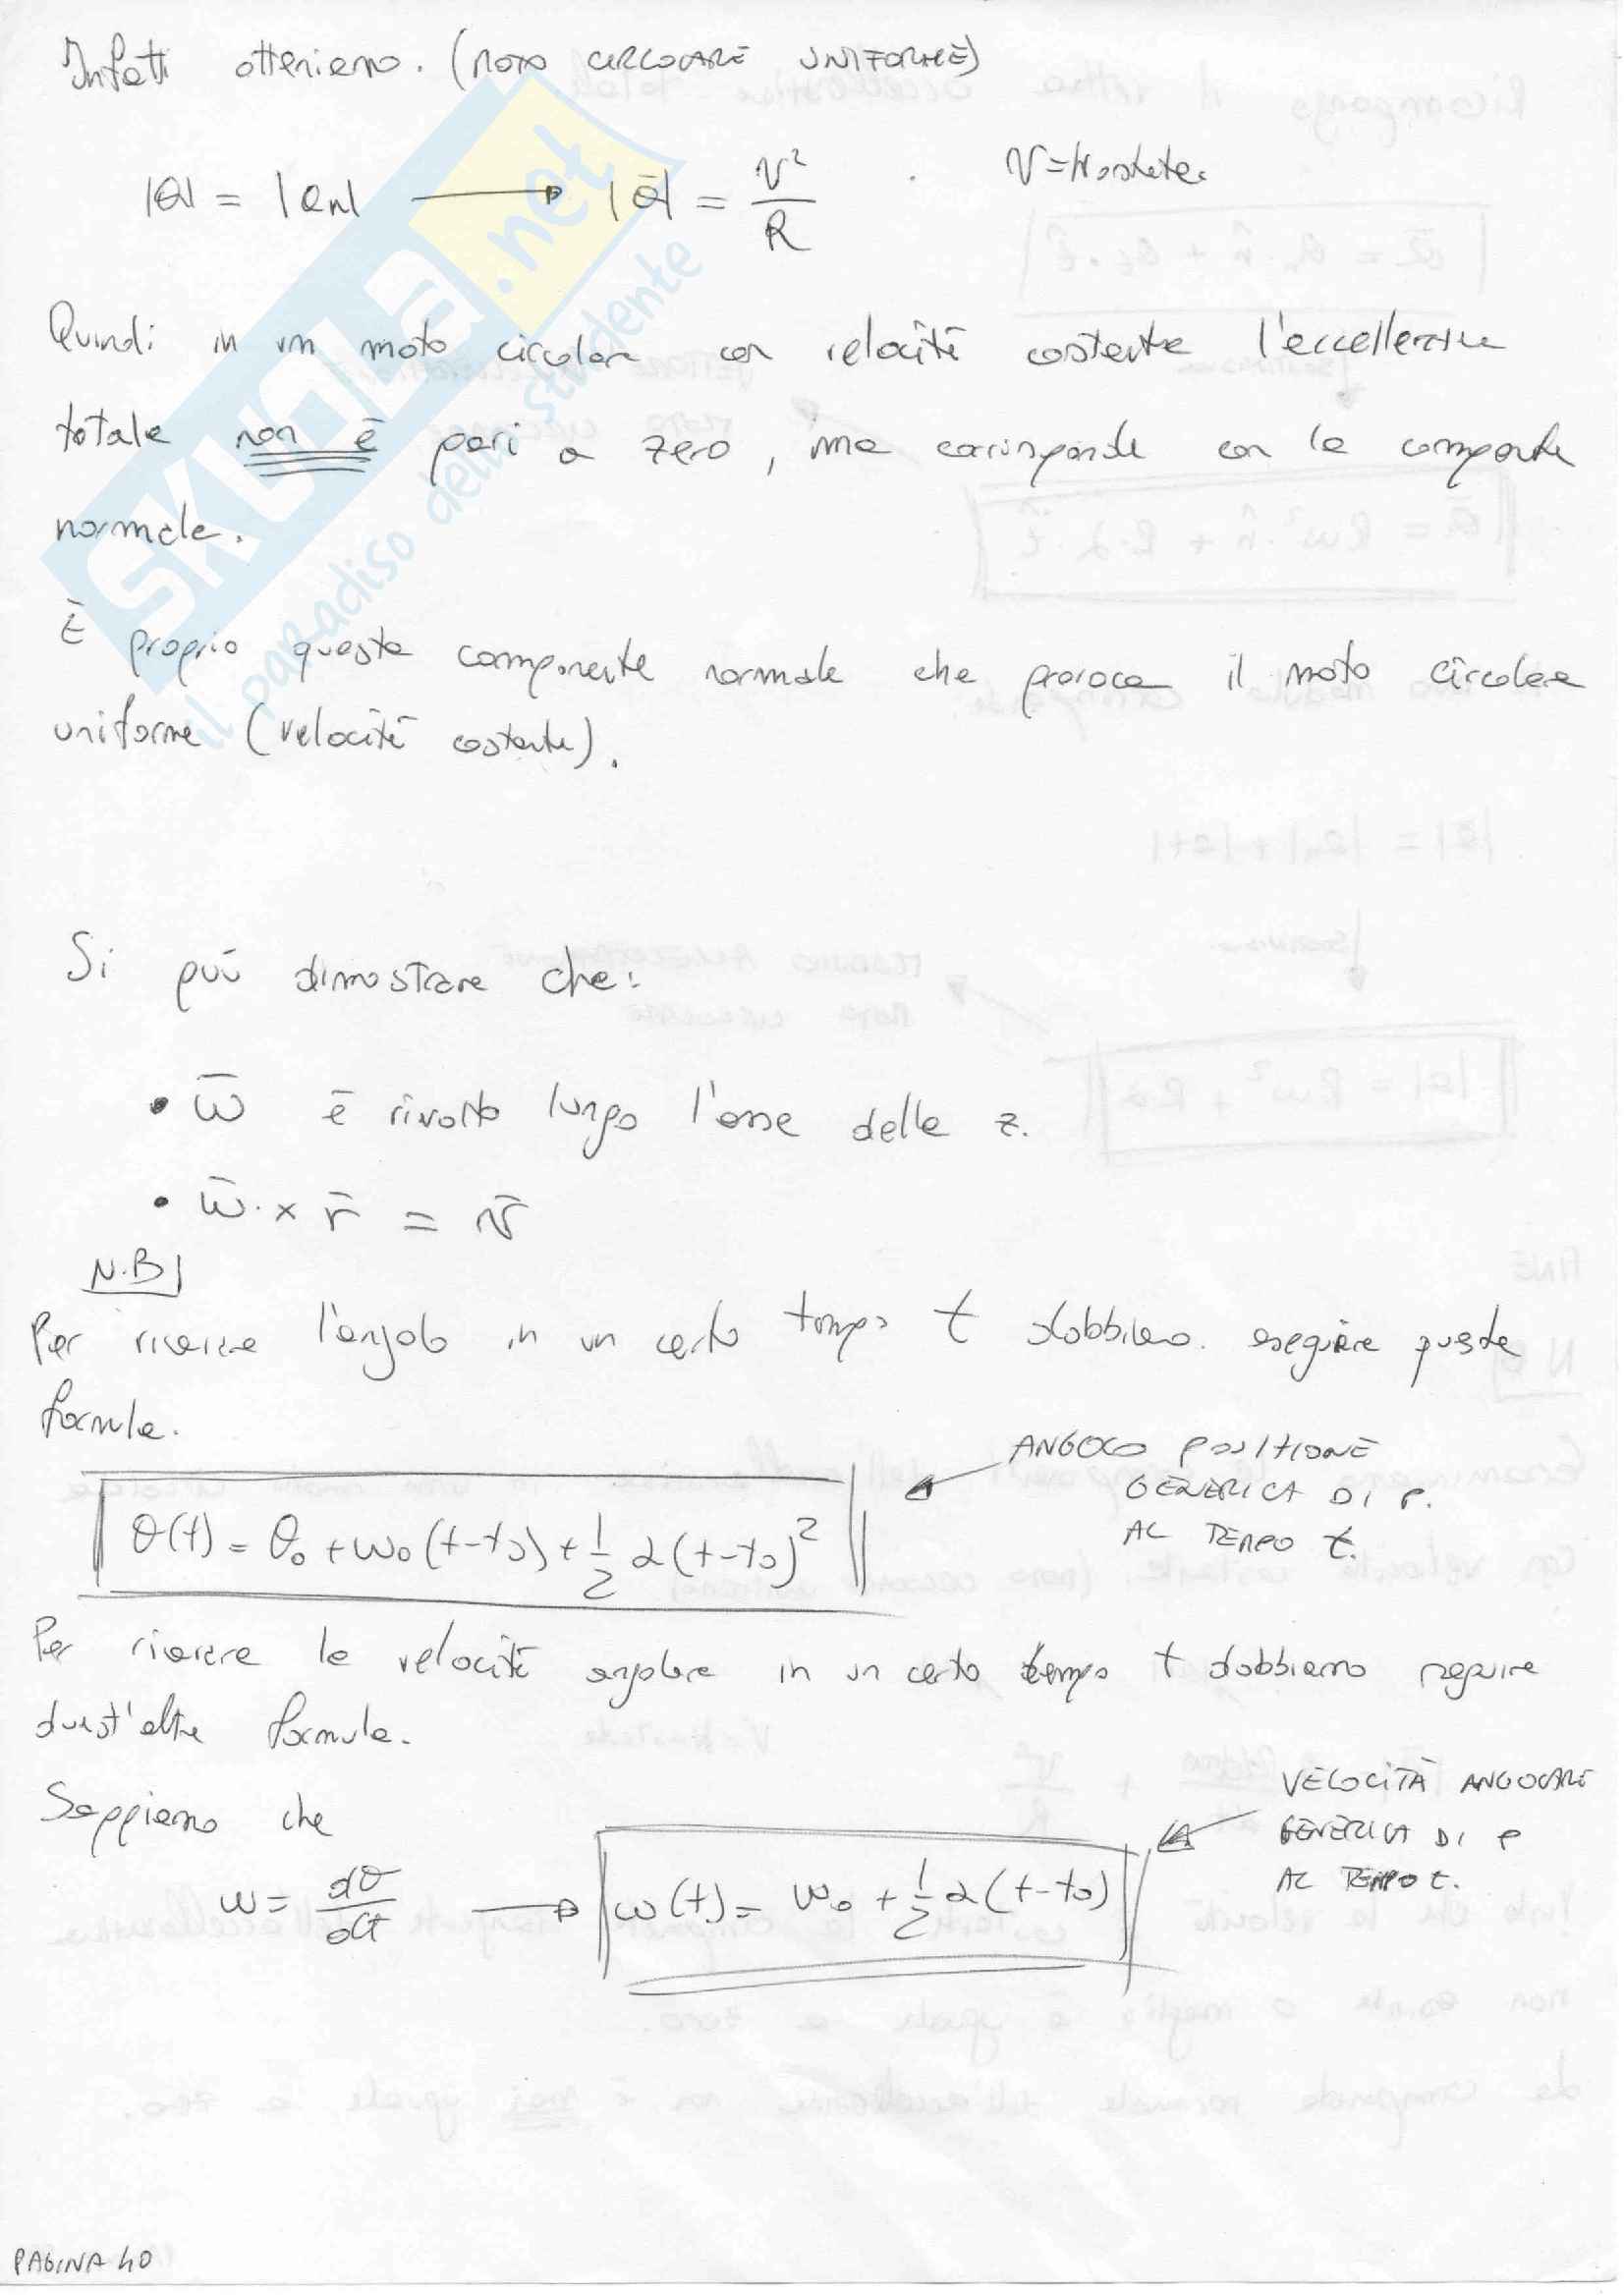 Infatti otteniamo. (MOTO CIRCOLARE UNIFORME)
|a| = |an| → |ā| = v²/R V=Kostante.
Quindi in un moto circolare con velocità costante l'accellerazione
totale non è pari a zero, ma corrisponde con la componente
normale.
È proprio questa componente normale che provoca il moto circolare
uniforme (velocità costante).
Si può dimostrare che:
• ω̄ è rivolto lungo l'asse delle z.
• ω̄ · x r̄ = v̄
N.B
Per ricavare l'angolo in un certo tempo t dobbiamo. eseguire questa
formula.
θ(t) = θ₀ + ω₀(t-t₀) + 1/2 α(t-t₀)²
ANGOLO POSITIONE
GENERICA DI P.
AL TEMPO t.
Per ricavare la velocità angolare in un certo tempo t dobbiamo seguire
quest'altra formula.
Sappiamo che
ω = dθ/dt → ω(t) = ω₀ + 1/2 α(t-t₀)
VELOCITÀ ANGOLARE
GENERICA DI P
AL TEMPO t.
PAGINA 40
SKUOLA.net
il paradiso dello studente